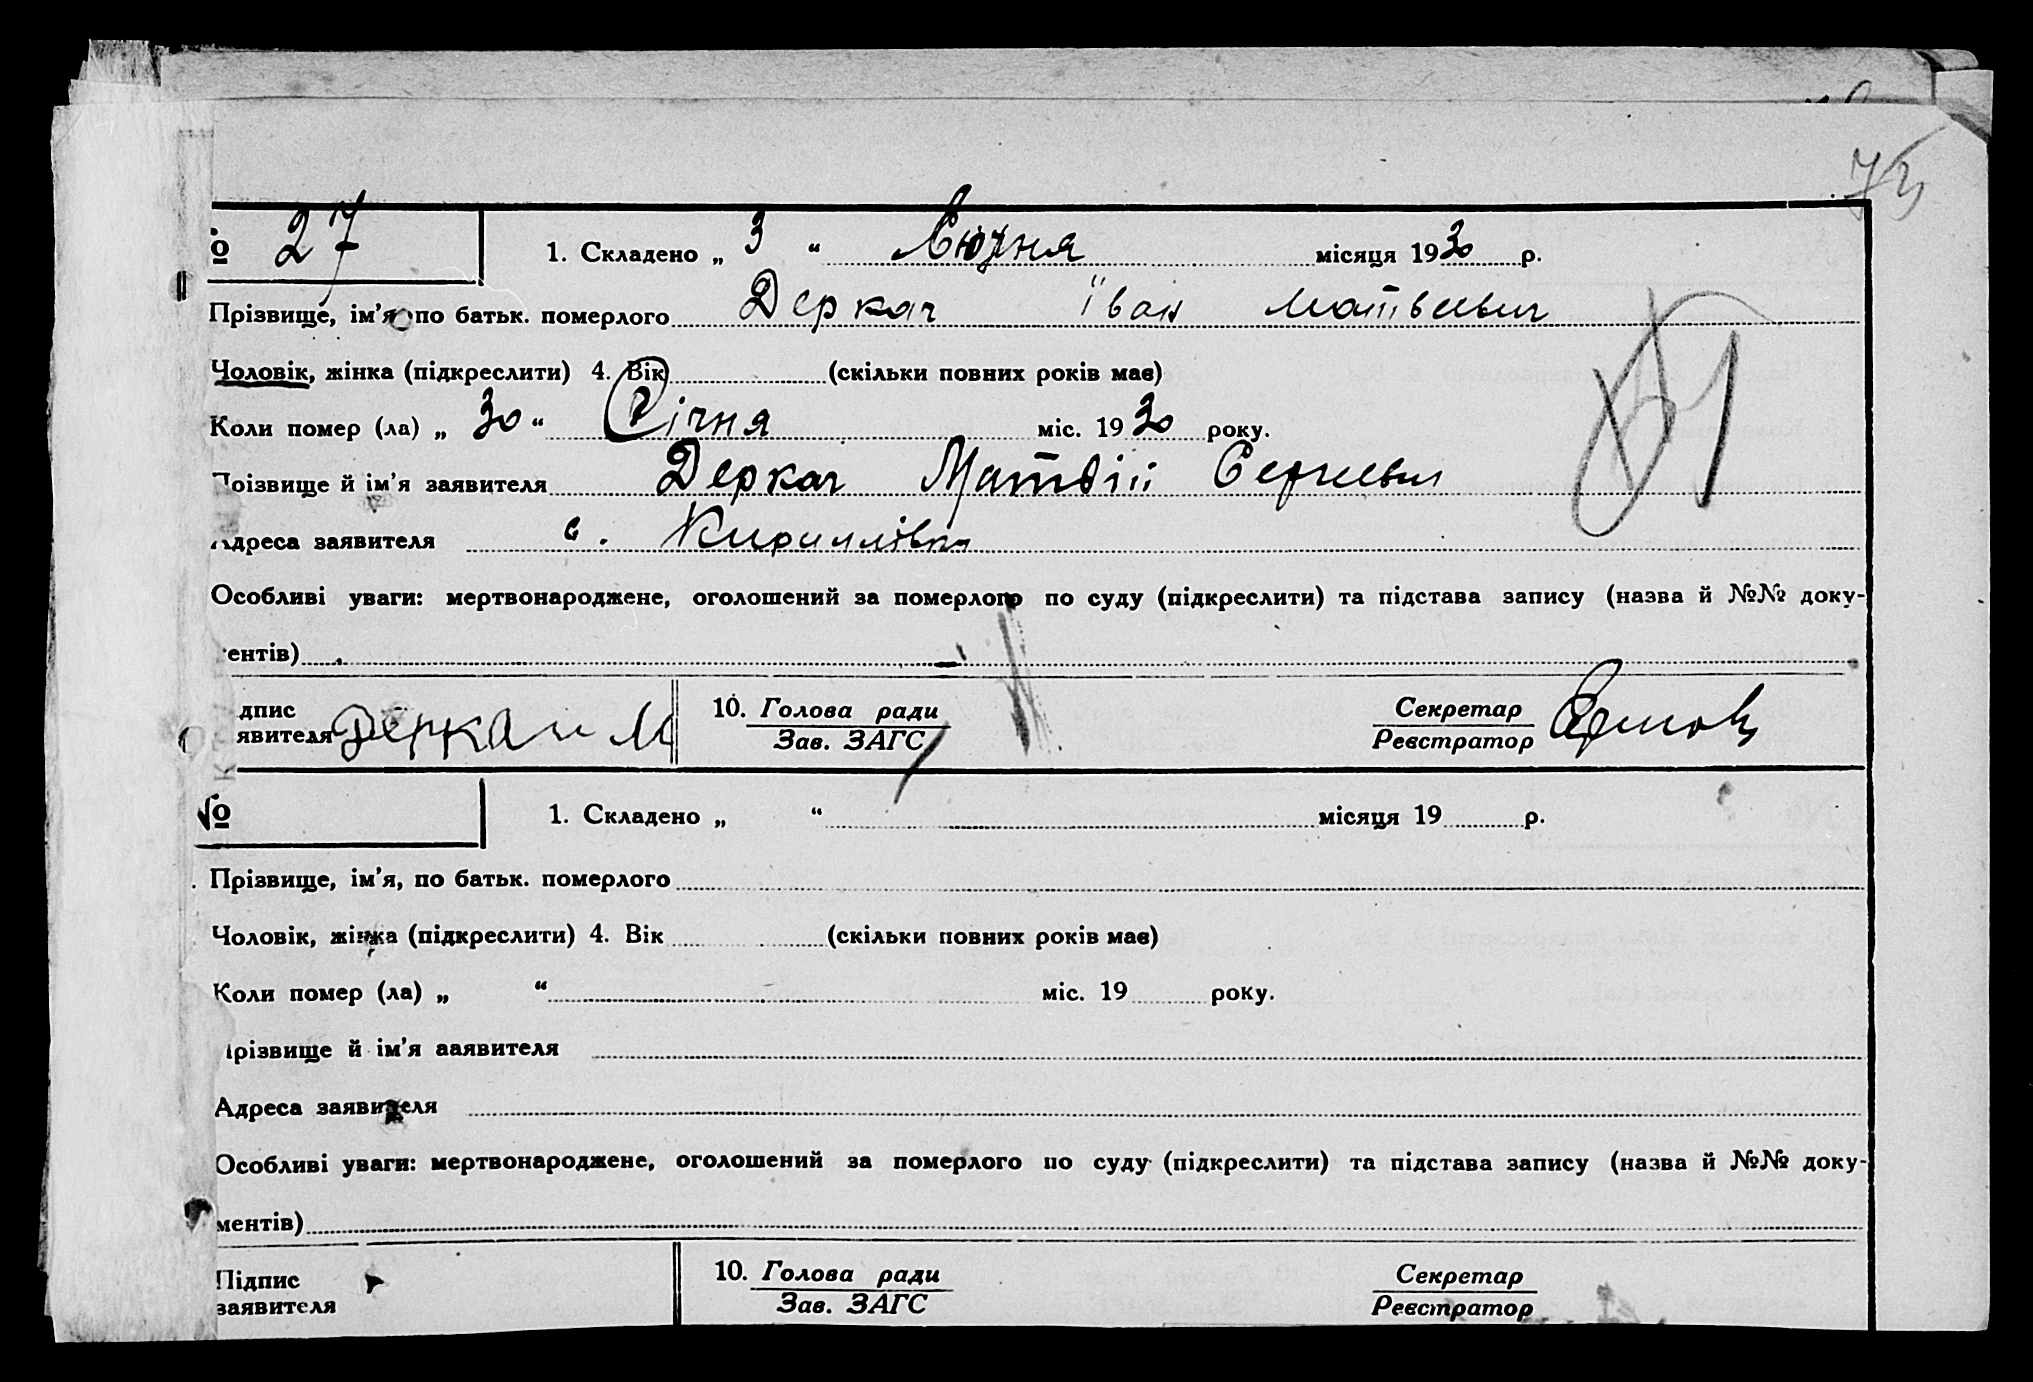 73
№ 27 1. Складено „ 3 “ Лютня місяця 1930 р.
Прізвище, ім’я, по батьк. померлого Деркач Іван Матвеевич
Чоловік, жінка (підкреслити) 4. Вік (скільки повних років має)
Коли помер (ла) „ 30 “ Січня міс. 1930 року.
Прізвище й ім’я заявителя Деркач Матвій Сергеевич
Адреса заявителя с. Кириллівка
Особливі уваги: мертвонароджене, оголошений за померлого по суду (підкреслити) та підстава запису (назва й №№ доку-
ентів)
дпис
явителя Деркач М
10. Голова ради
Зав. ЗАГС
Секретар
Реєстратор
№ 1. Складено „ “ місяця 19 р.
Прізвище, ім’я, по батьк. померлого
Чоловік, жінка (підкреслити) 4. Вік (скільки повних років має)
Коли помер (ла) „ “ міс. 19 року.
Прізвище й ім’я ааявителя
Адреса заявителя
Особливі уваги: мертвонароджене, оголошений за померлого по суду (підкреслити) та підстава запису (назва й №№ доку-
ментів)
Підпис
заявителя
10. Голова ради
Зав. ЗАГС
Секретар
Реєстратор